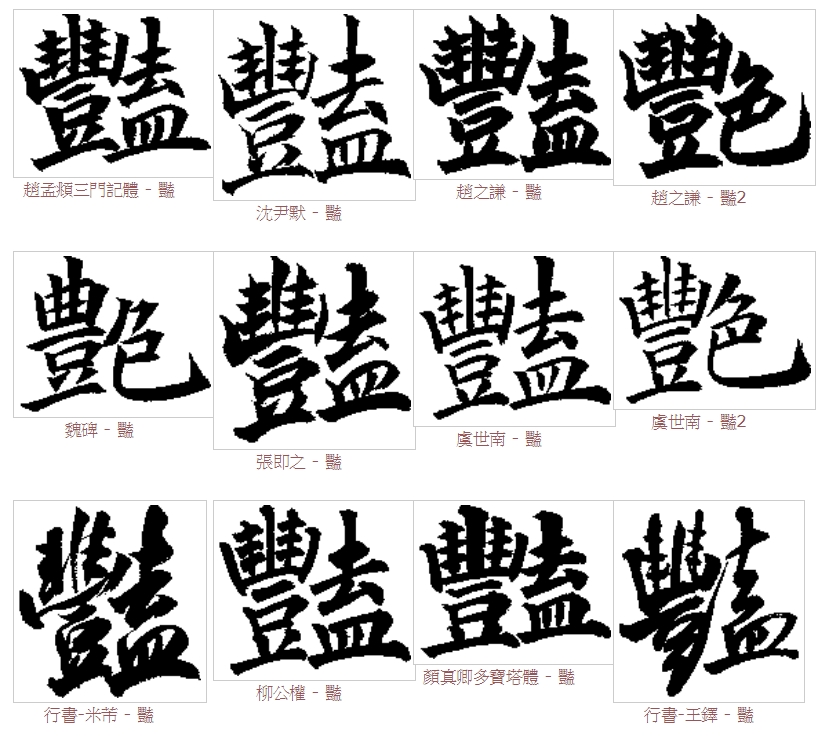 豔 豔 豔 艷
趙孟頫三門記體 - 豔
沈尹默 - 豔
趙之謙 - 豔
趙之謙 - 豔2
艶 豔 豔 艷
魏碑 - 豔
張即之 - 豔
虞世南 - 豔
虞世南 - 豔2
豔 豔 豔 豔
行書-米芾 - 豔
柳公權 - 豔
顏真卿多寶塔體 - 豔
行書-王鐸 - 豔